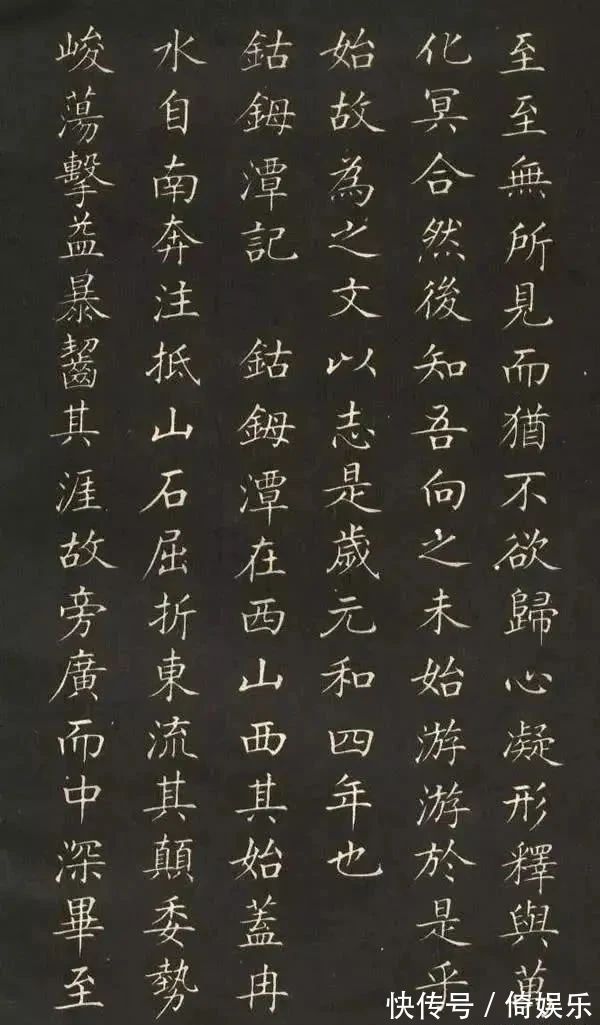 至至無所見而猶不欲歸心凝形釋與萬
化冥合然後知吾向之未始游游於是乎
始故為之文以志是歲元和四年也
鈷鉧潭記 鈷鉧潭在西山西其始蓋冉
水自南奔注抵山石屈折東流其顛委勢
峻蕩擊益暴齧其涯故旁廣而中深畢至
快传号 / 倚娱乐